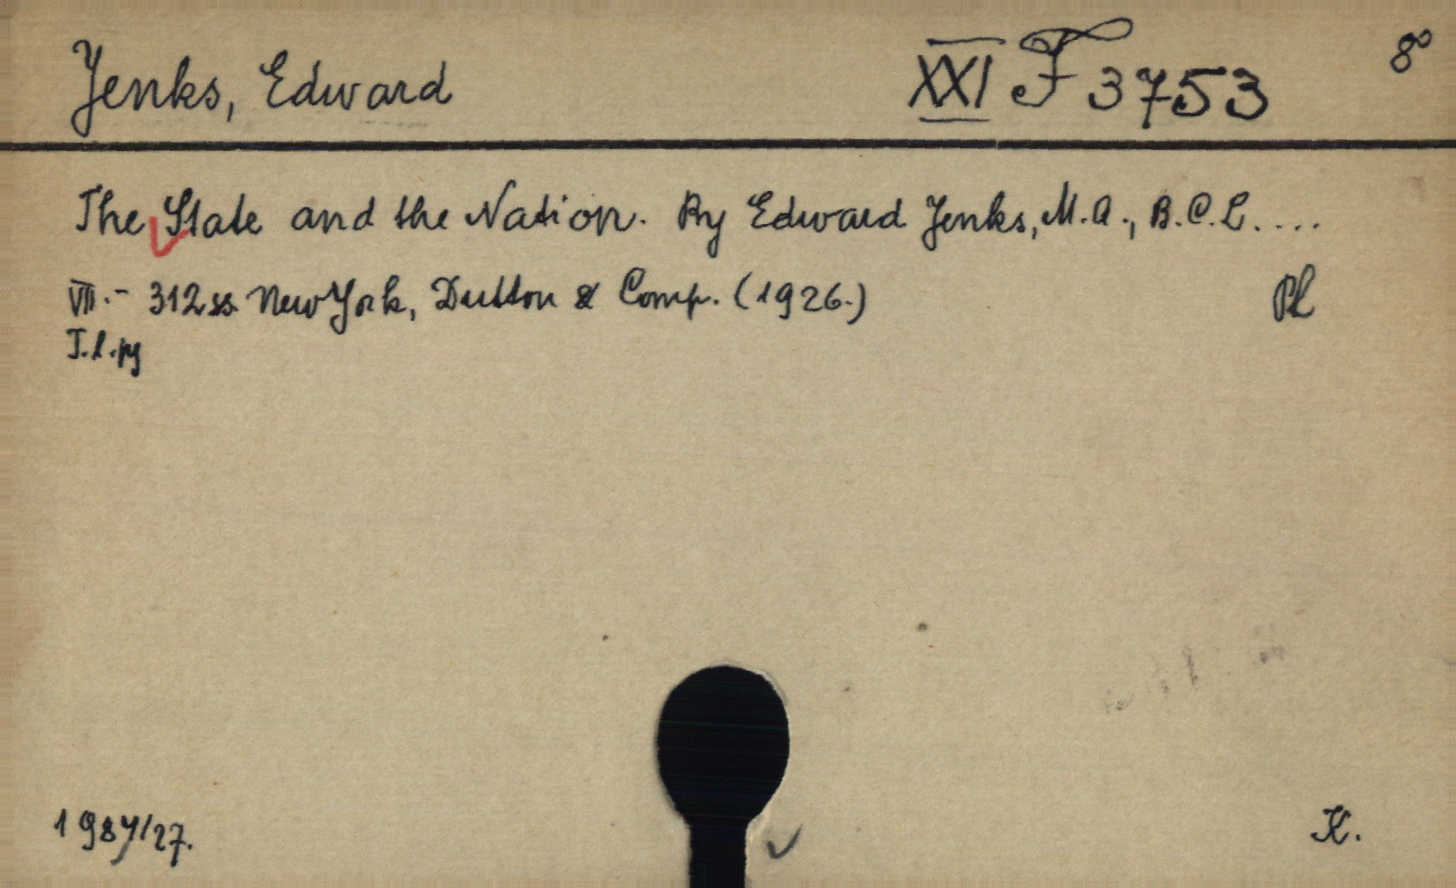 Jenks, Edward XXI F 3753 8°
The State and the Nation. By Edward Jenks, M.A., B.C.L. ....
VII.- 312 ss. New York, Dutton & Comp. (1926.) Pl
T.l.py
1987/27. K.